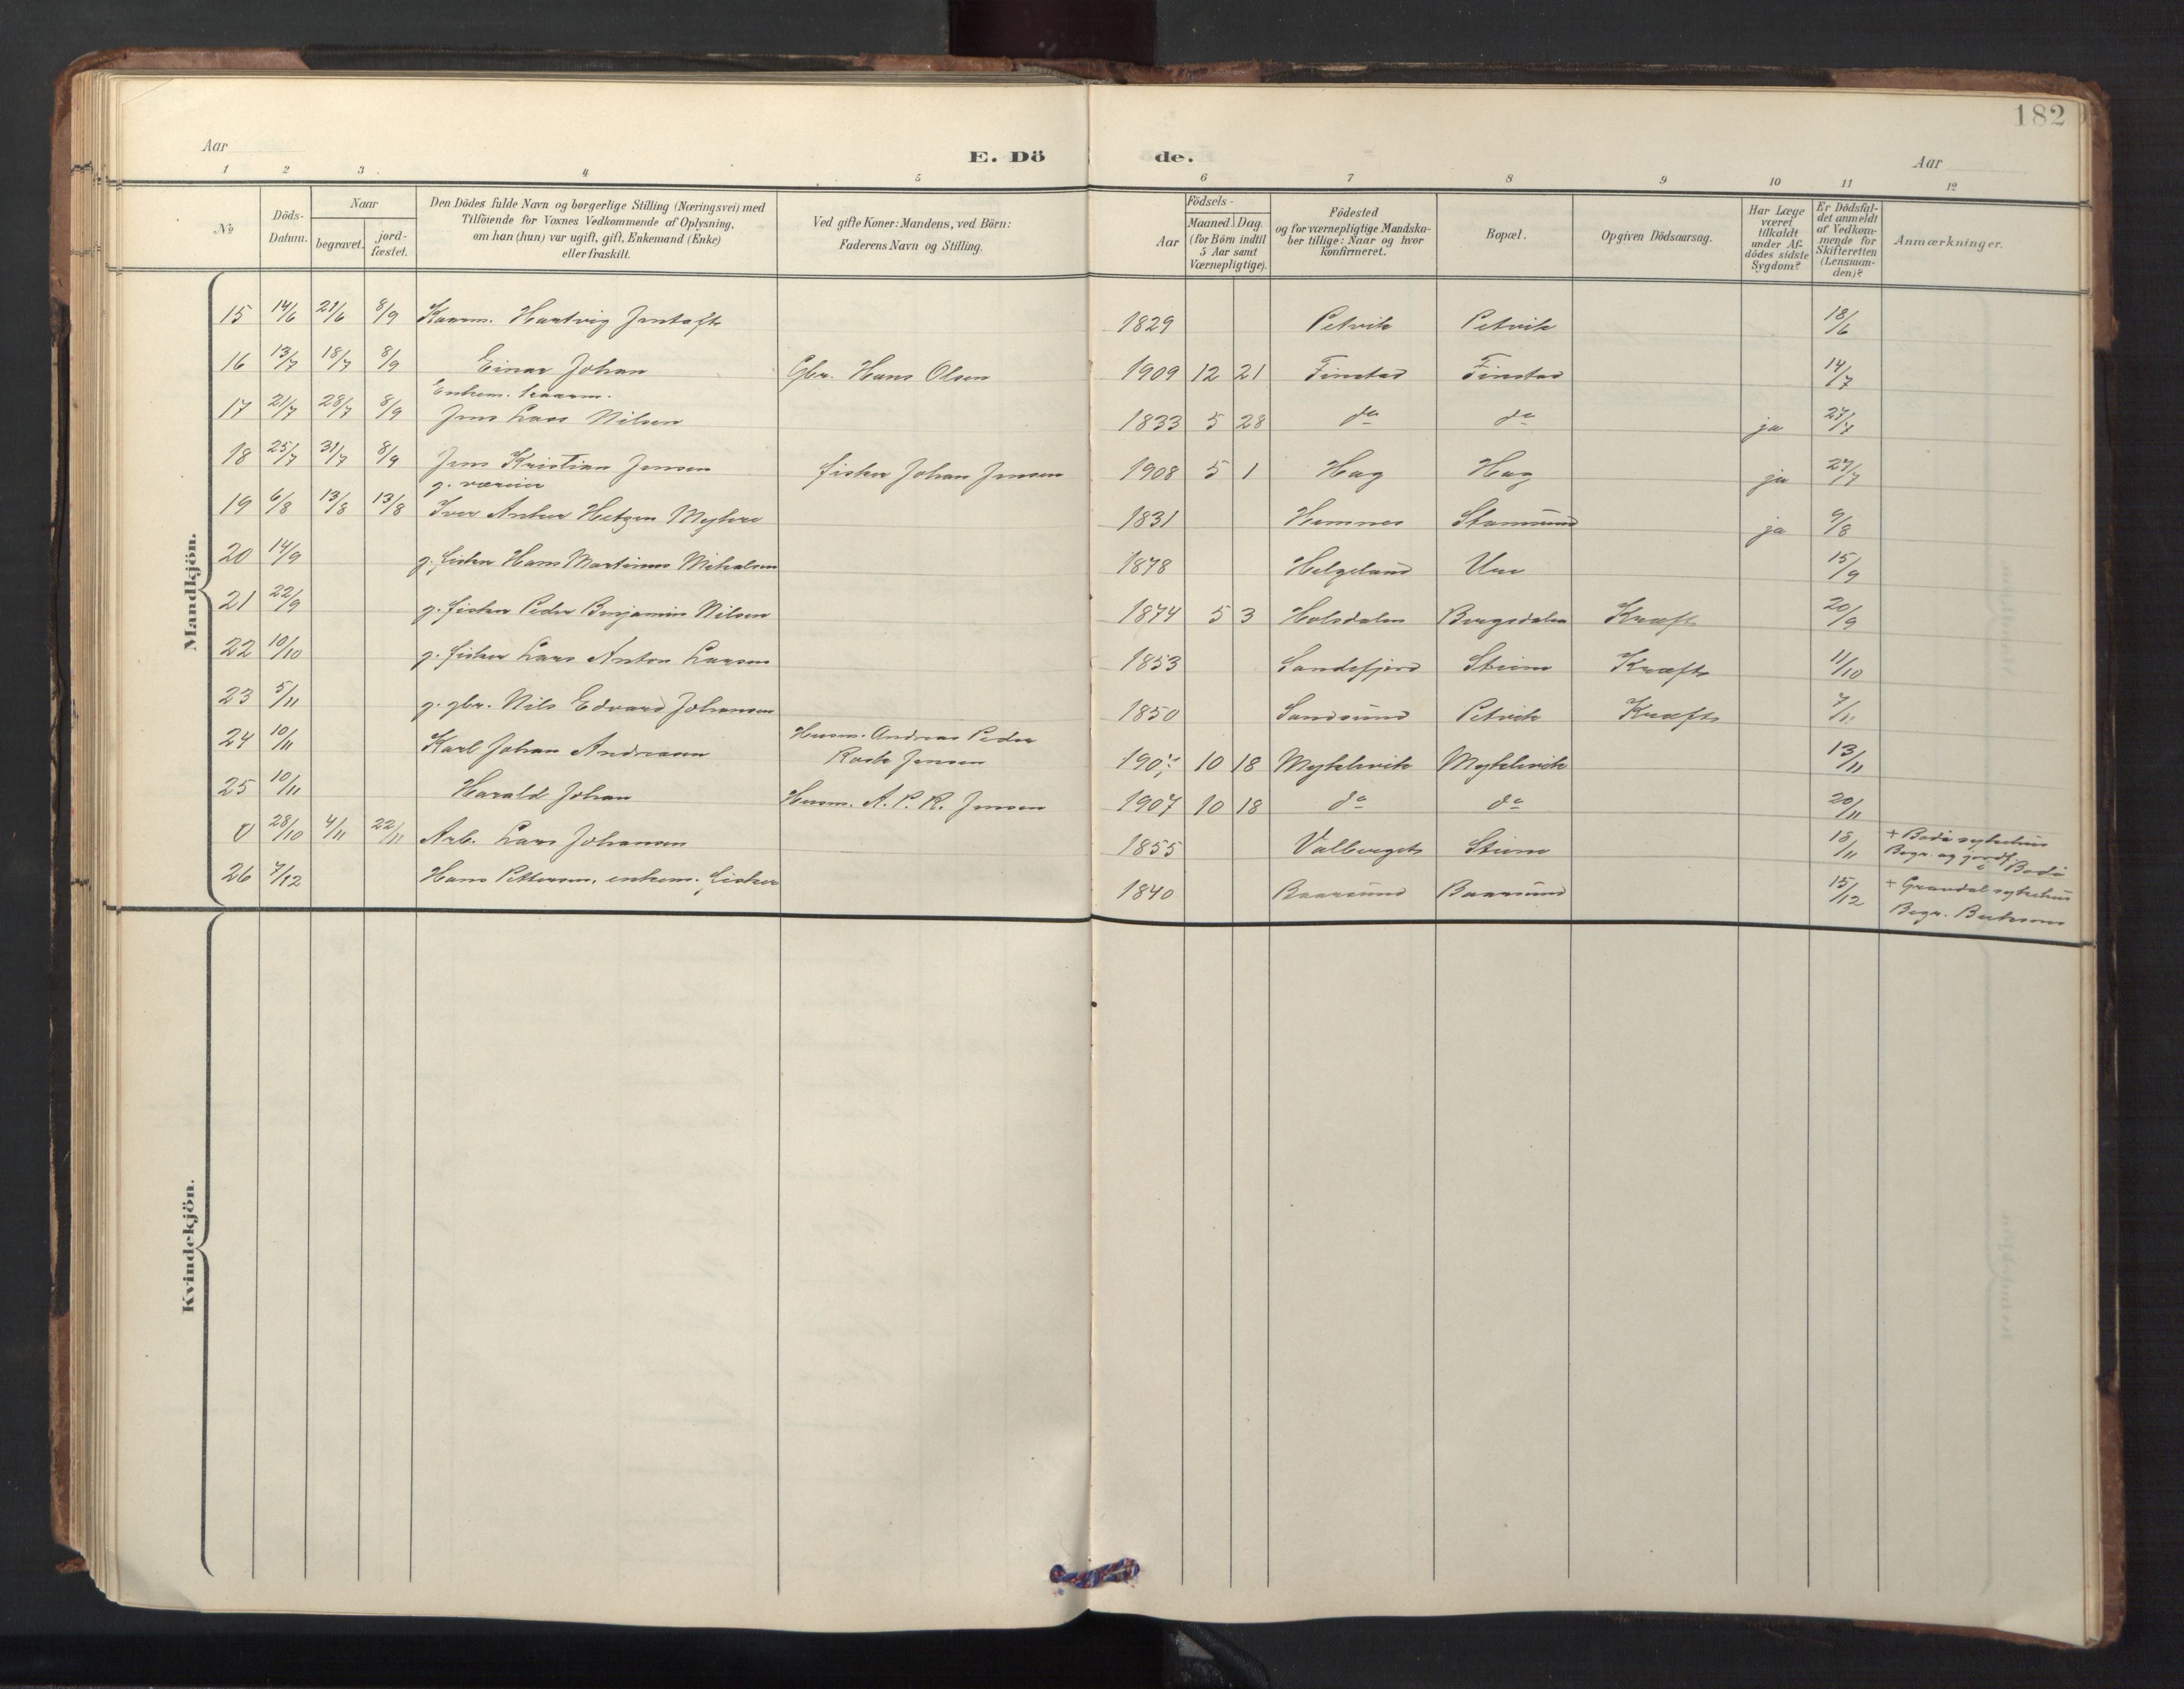 182
Aar
E. Dö
de.
Aar
1 2 3 4 5 6 7 8 9 10 11 12
No
Döds-
Datum.
Naar
begravet.
jord-
fæstet.
Den Dödes fulde Navn og borgerlige Stilling (Næringsvei) med
Tilföiende for Voxnes Vedkommende af Oplysning,
om han (hun) var ugift, gift, Enkemand (Enke)
eller fraskilt.
Ved gifte Koner: Mandens, ved Börn:
Faderens Navn og Stilling.
Födsels-
Aar
Maaned.
Dag.
(for Börn indtil
5 Aar samt
Værnepligtige).
Födested
og for værnepligtige Mandska-
ber tillige: Naar og hvor
konfirmeret.
Bopæl.
Opgiven Dödsaarsag.
Har Læge
været
tilkaldt
under Af-
dödes sidste
Sygdom?
Er Dödsfal-
det anmeldt
af Vedkom-
mende for
Skifteretten
(Lensman-
den)?
Anmærkninger.
Mandkjön.
15 14/6 21/6 8/9 Kaarm. Hartvig 1829 Petvik Petvik 18/6
16 13/7 18/7 8/9 Einar Johan Gbr. Hans Olsen 1909 12 21 Finstad Finstad 14/7
Enkem. kaarm.
17 21/7 28/7 8/9 Jens Lars Nilsen 1833 5 28 do do ja 27/7
18 25/7 31/7 8/9 Jens Kristian Jensen fisker Johan Jensen 1908 5 1 Hag Hag ja 27/7
g. væreier
19 6/8 13/8 13/8 Iver Anker 1831 Hemnes Stamsund ja 9/8
20 14/9 g. fisker Hans Martinus 1878 Helgeland Ure 15/9
21 22/9 g. fisker Peder Benjamin Nilsen 1874 5 3 Holsdalen Bergsdalen Kræft 20/9
22 10/10 g. fisker Lars Anton Larsen 1853 Sandefjord Steine Kræft 11/10
23 5/11 g. gbr. Nils Edvard Johansen 1850 Sandsund Petvik Kræft 7/11
24 10/11 Karl Johan Andreasen Husm. Andreas Peder
Jensen 10 18 Myklevik Myklevik 13/11
25 10/11 Harald Johan Husm. A. P. R. Jensen 1907 10 18 do do 20/11
0 28/10 4/11 22/11 Arb. Lars Johansen 1855 Valberget Steine 18/11 + Bodø sykehus
Begr. og jordf. i Bodø
26 7/12 Hans Pettersen, enkem. fisker 1840 Baarsund Baarsund 15/12 + Gravdal sykehus
Begr. Buksnes
Kvindekjön.